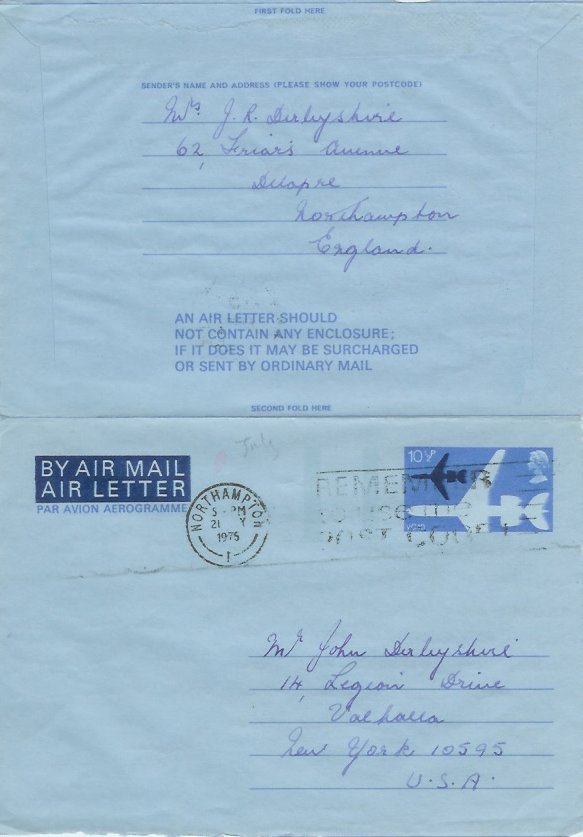 FIRST FOLD HERE
SENDER'S NAME AND ADDRESS (PLEASE SHOW YOUR POSTCODE)
Mrs. J. R. Derbyshire
62, Friars Avenue
Delapre
Northampton
England.
AN AIR LETTER SHOULD
NOT CONTAIN ANY ENCLOSURE;
IF IT DOES IT MAY BE SURCHARGED
OR SENT BY ORDINARY MAIL
SECOND FOLD HERE
July
BY AIR MAIL
AIR LETTER
PAR AVION AEROGRAMME
NORTHAMPTON
5 - PM
21 Y
1975
1
10½P
REMEMBER
TO USE THE
POST CODE
Mr John Derbyshire
14, Legion Drive
Valhalla
New York 10595
U.S.A.